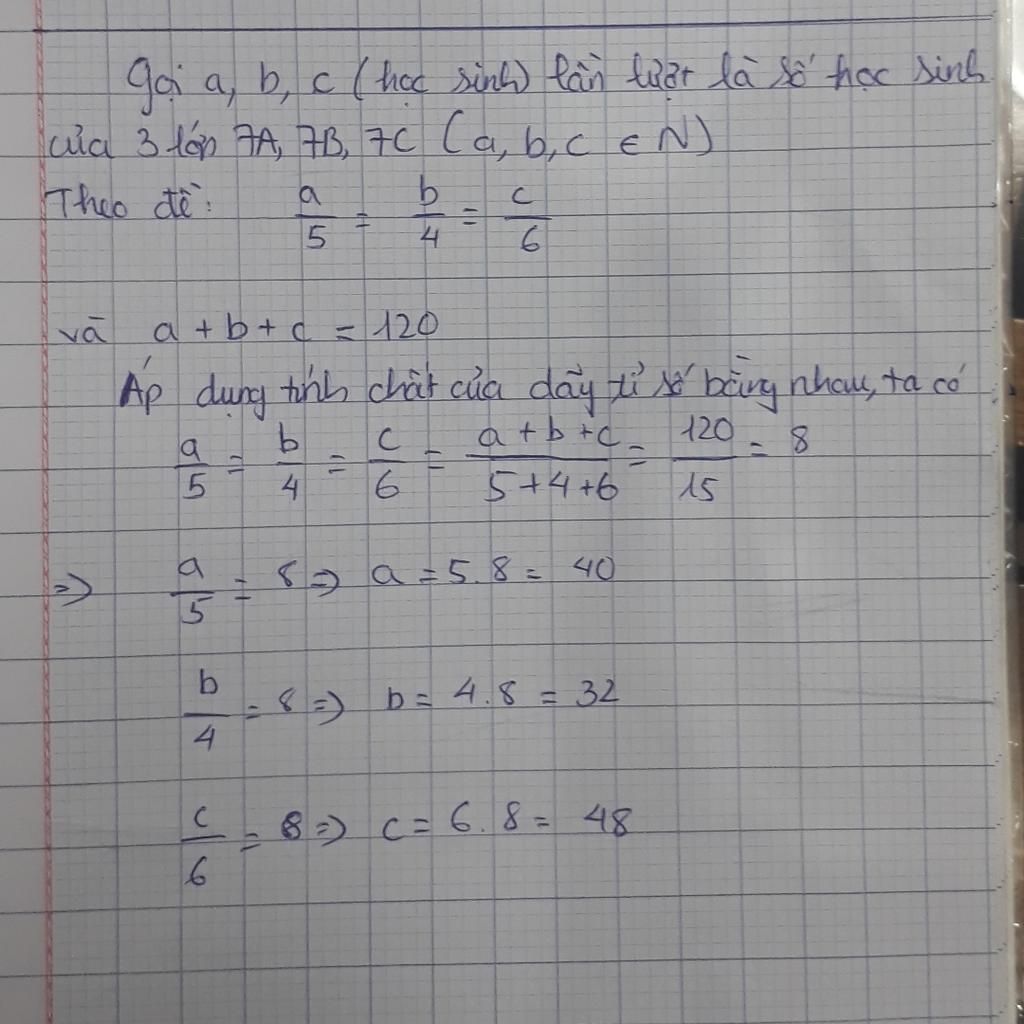 Gọi a, b, c (học sinh) lần lượt là số học sinh
của 3 lớp 7A, 7B, 7C (a, b, c ∈ N)
Theo đề: a/5 = b/4 = c/6
và a + b + c = 120
Áp dụng tính chất của dãy tỉ số bằng nhau, ta có
a/5 = b/4 = c/6 = (a + b + c)/(5 + 4 + 6) = 120/15 = 8
=> a/5 = 8 => a = 5.8 = 40
b/4 = 8 => b = 4.8 = 32
c/6 = 8 => c = 6.8 = 48